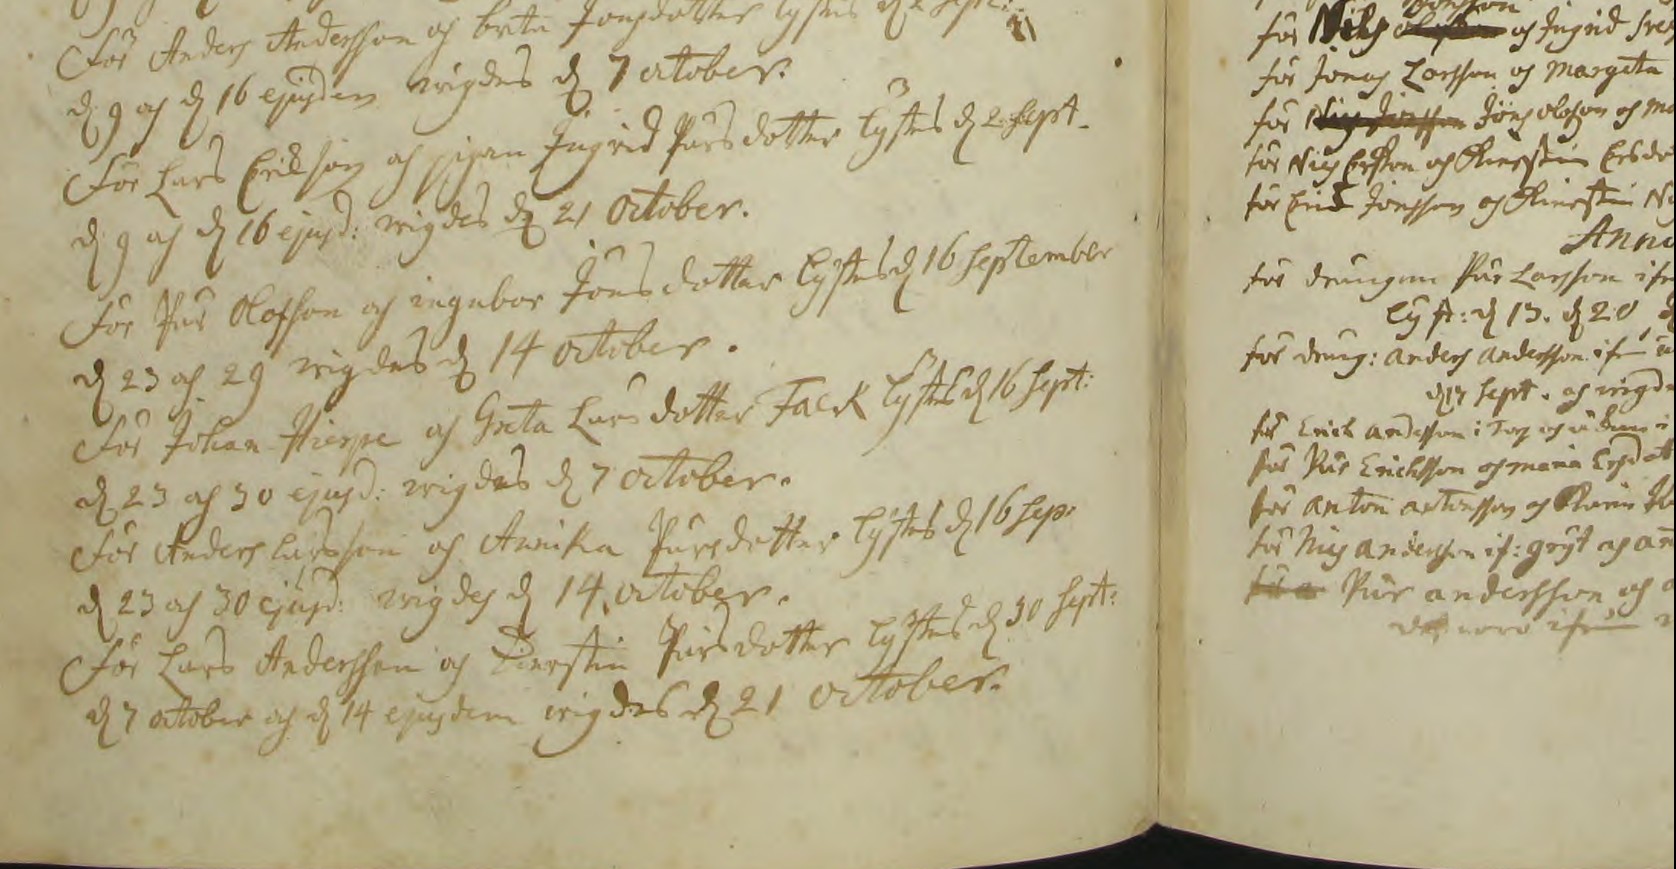 För Anders Andersson och brita Jonsdotter lystes d 2 sept:
d. 9 och d 16 ejusdem wigdes d 7 october.
För Lars Erikson och pigan Ingrid Pärsdotter lystes d 2 sept.
d. 9 och d 16 ejusd: wigdes d 21 October.
För Pär Olofson och ingebor Jönsdotter lystes d 16 september
d 23 och 29 wigdes d 14 october.
För Johan Hierpe och Greta Larsdotter Falck lystes d 16 sept:
d 23 och 30 ejusd: wigdes d 7 october.
För Anders larsson och Annika Pärsdotter lystes d 16 sep:
d 23 och 30 ejusd: wigdes d 14 october.
För Lars Andersson och Kierstin Pärsdotter lystes d 30 sept:
d 7 october och d 14 ejusdem wigdes d 21 october.
för Nils och Ingrid
för Jonas Larsson och Margeta
för Jöns olofson och
för Nils Ersson och Kierstin Ersdo
för Erik Jonsson och Kierstin
Anno
för drengen Pär Larsson ifr
lyst: d 13. d 20
för dreng: anders andersson ifr
sept. och wigd
för Erick andersson i
för Pär Erichsson och maria Ersdot
för anton antonsson och Karin
för Nils andersson if: gryt och an
Pär andersson och